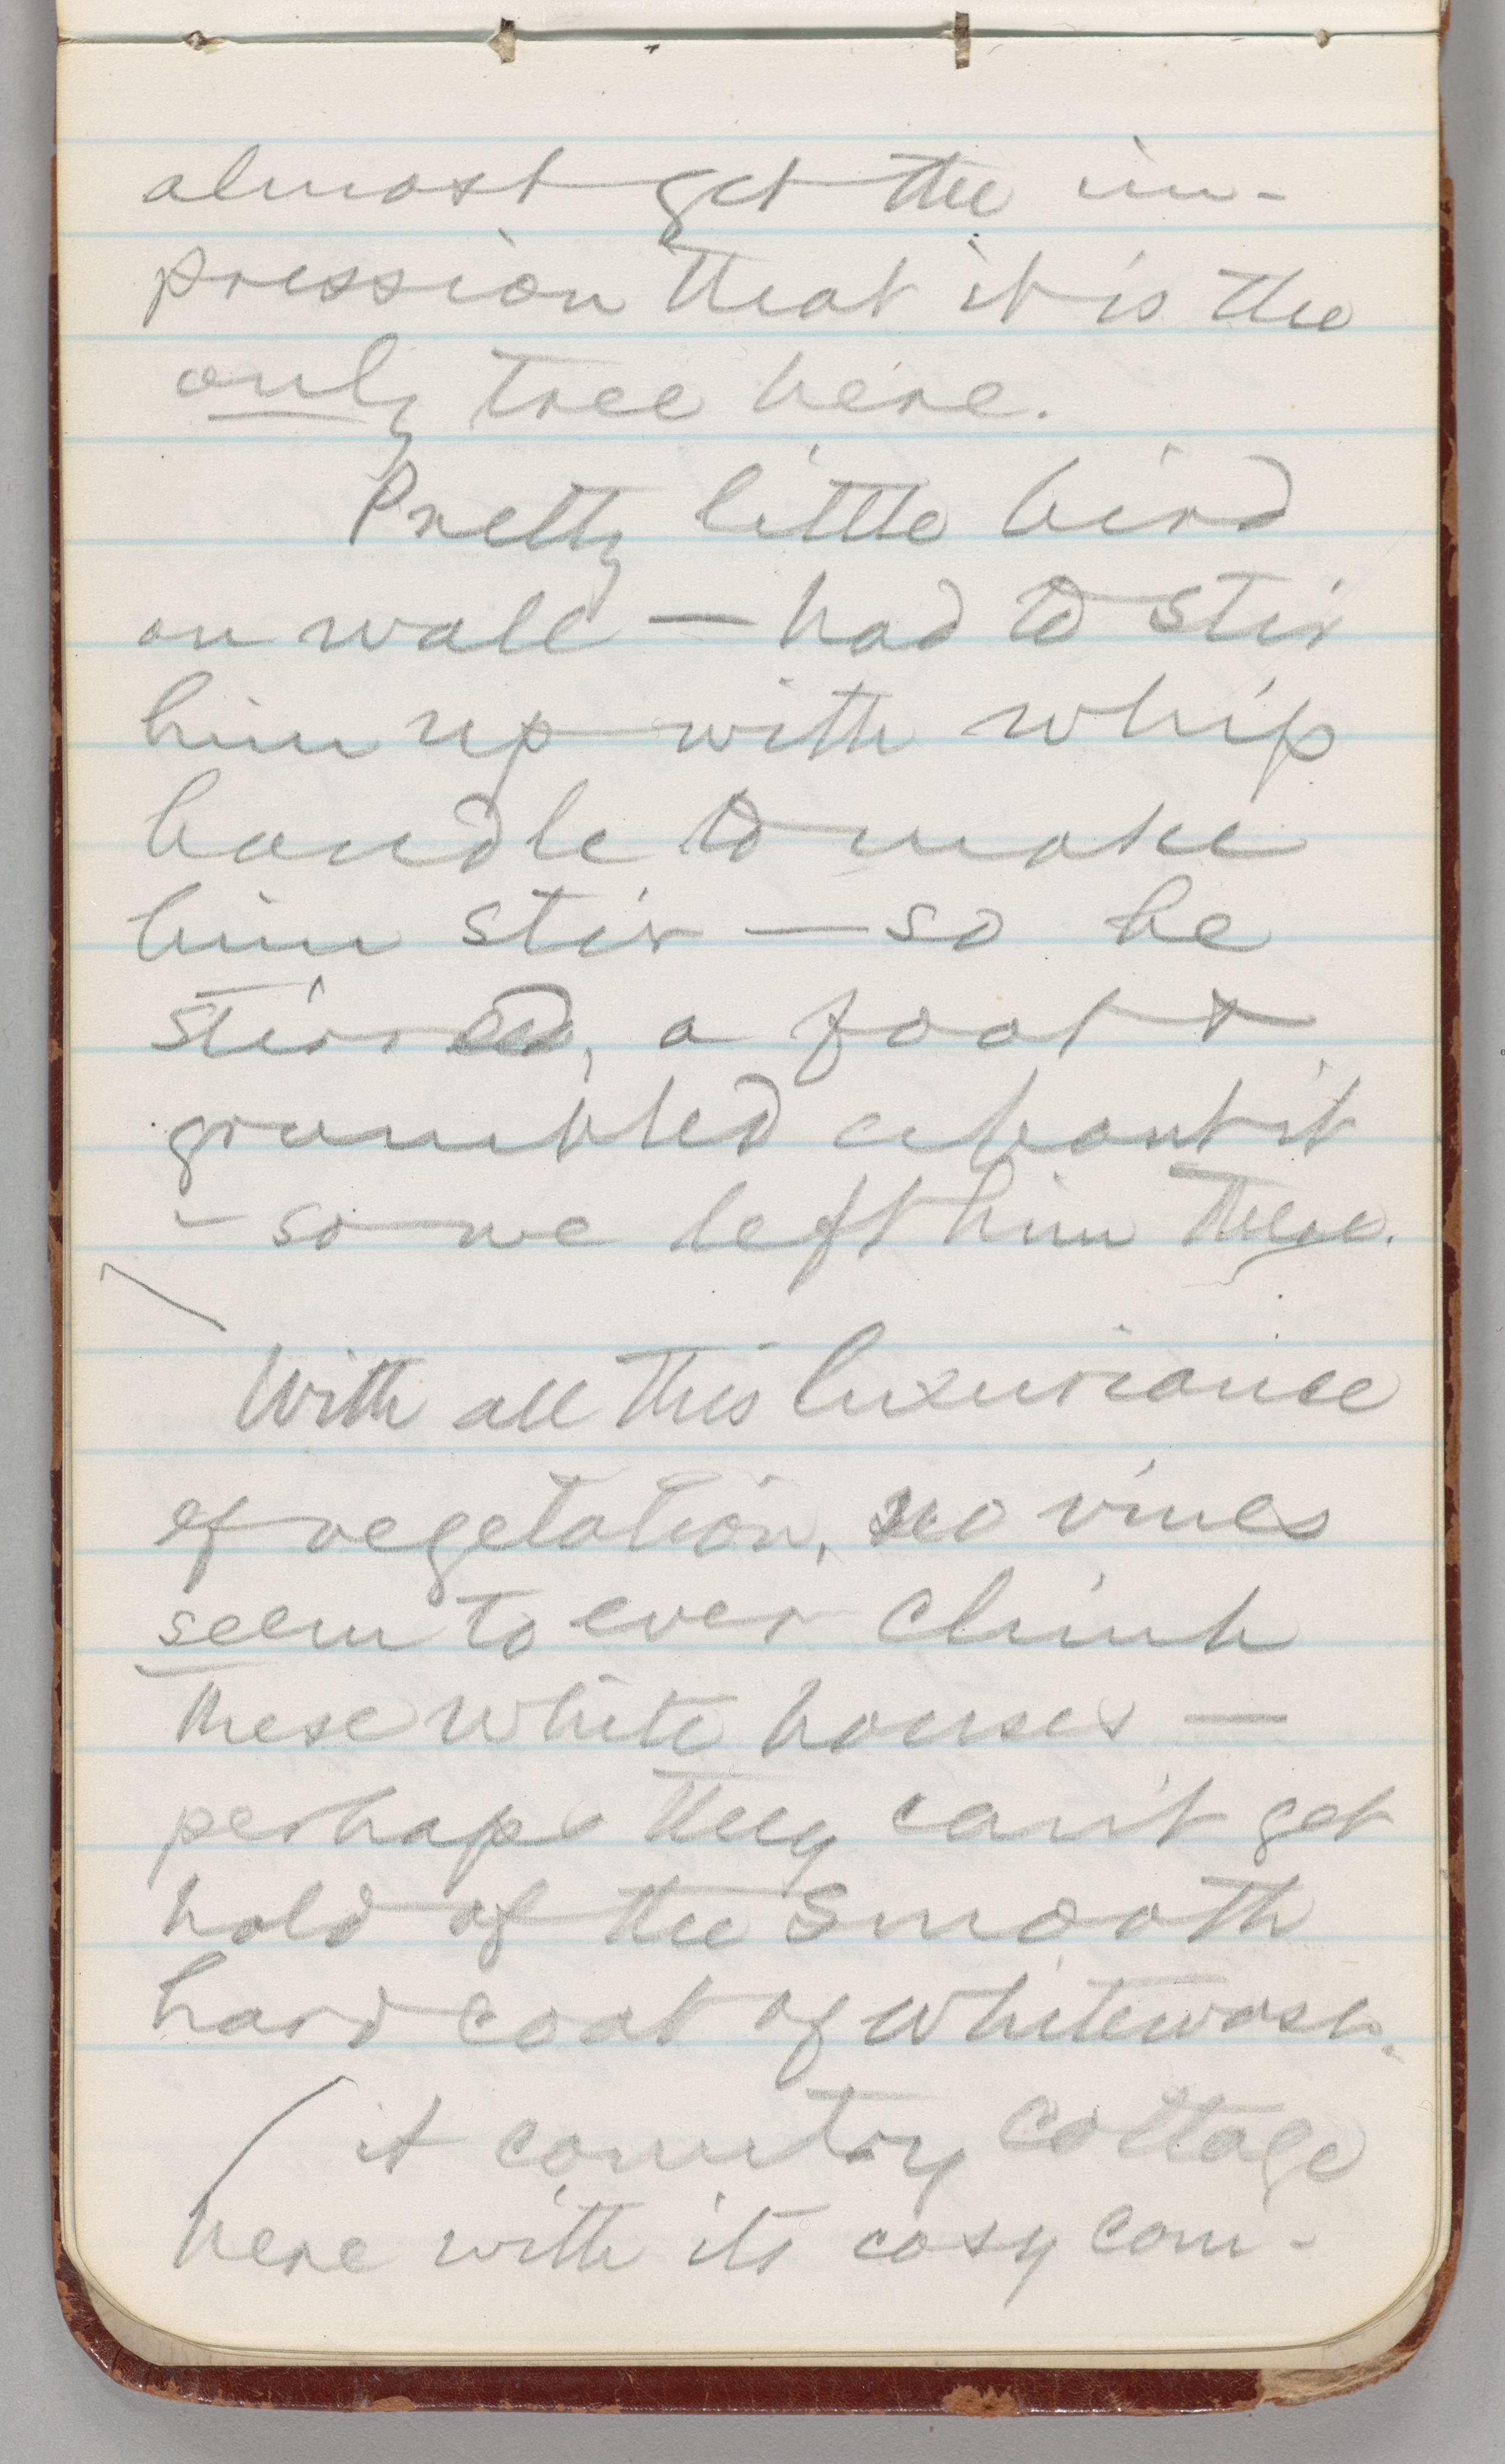 almost get the im-
pression that it is the
only tree here.
Pretty little bird
on wall — had to stir
him up with whip
handle to make
him stir — so he
stirred, a foot &
grumbled about it
– so we left him there.
With all this luxuriance
of vegetation, no vines
seem to ever climb
these white houses —
perhaps they can't get
hold of the smooth
hard coat of whitewash.
A country cottage
here with its cosy com-